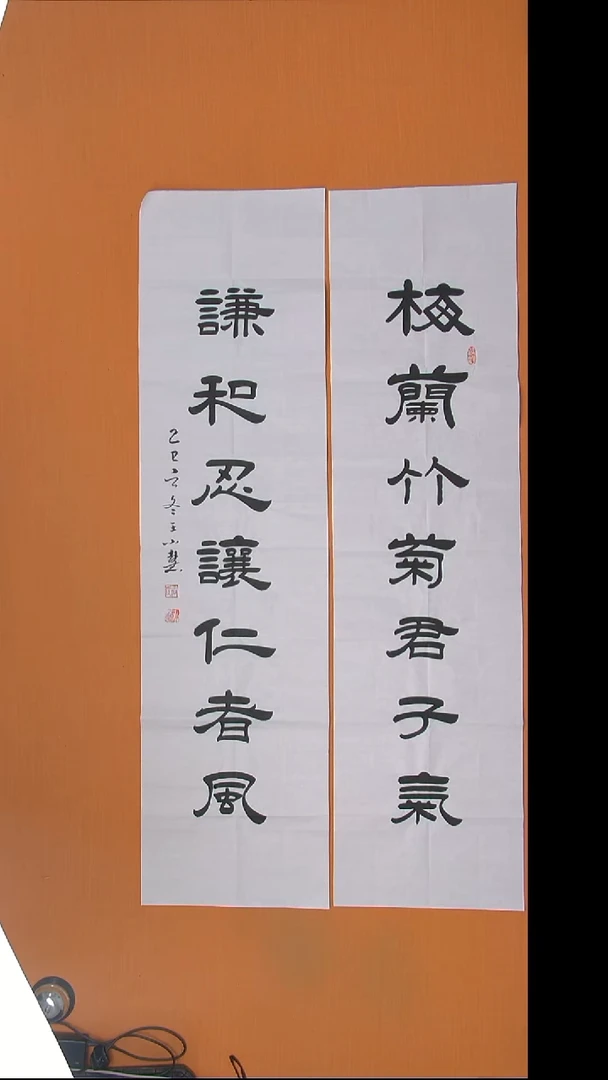 梅蘭竹菊君子氣
謙和忍讓仁者風
乙巳之冬王小慧